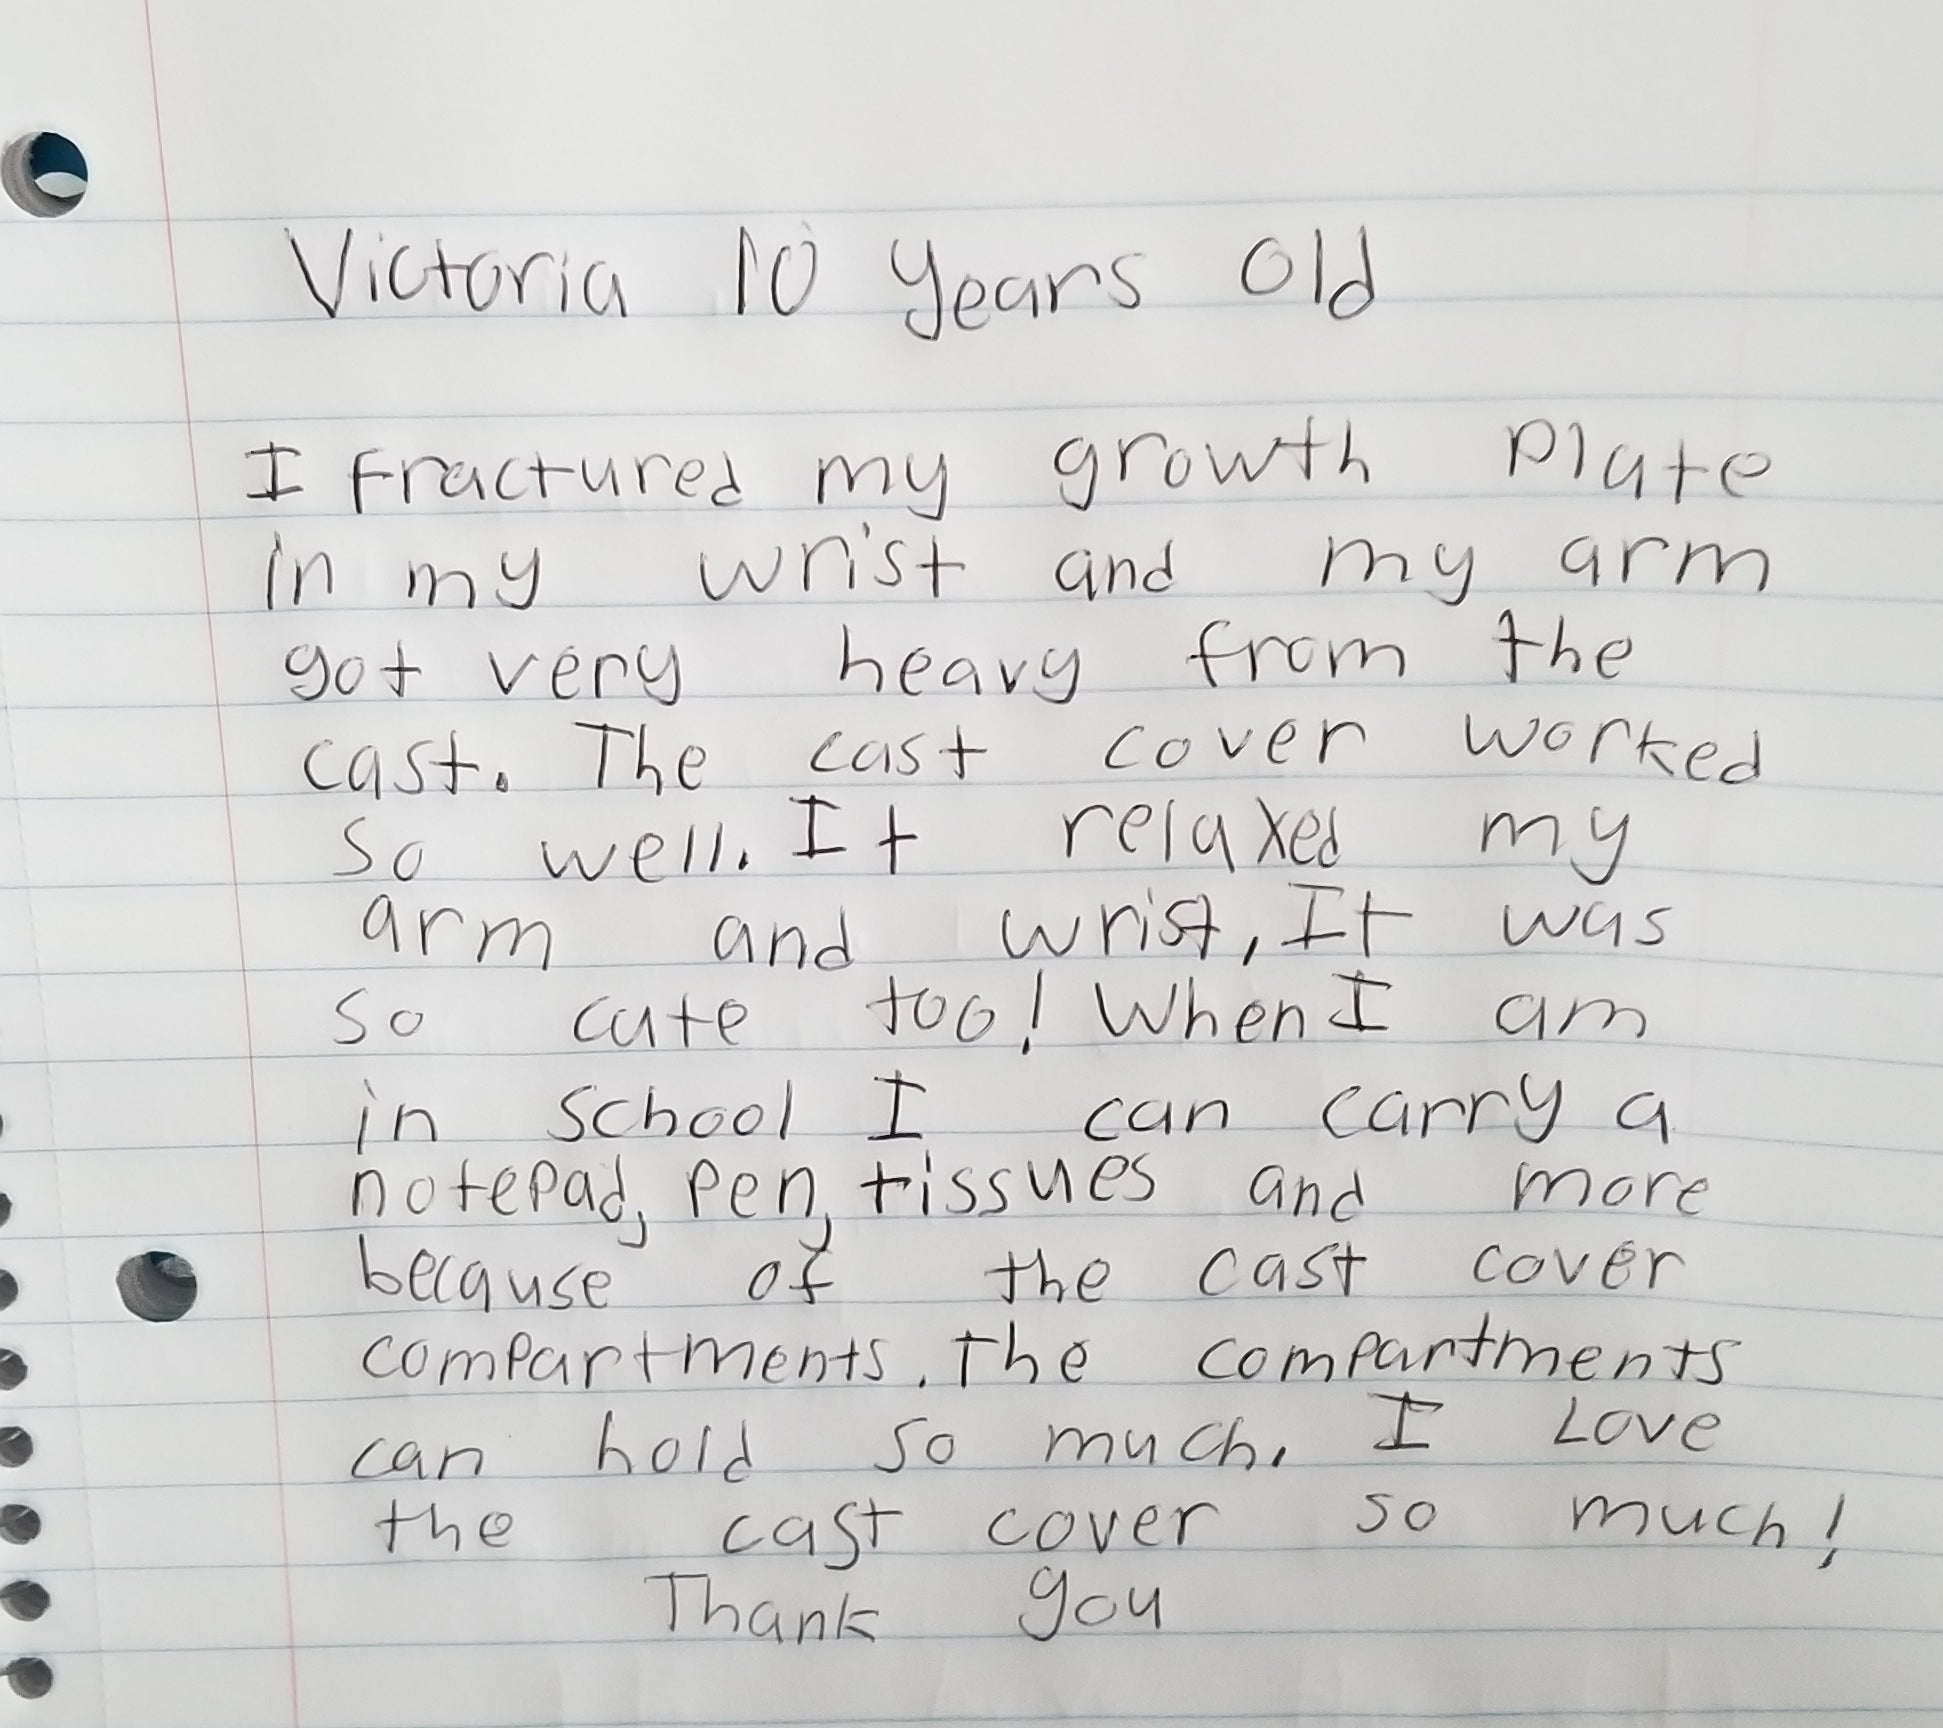 Victoria 10 years old
I fractured my growth plate
in my wrist and my arm
got very heavy from the
cast. The cast cover worked
so well. It relaxed my
arm and wrist, It was
so cute too! When I am
in school I can carry a
notepad, pen, tissues and more
because of the cast cover
compartments. The compartments
can hold so much. I Love
the cast cover so much!
Thank you